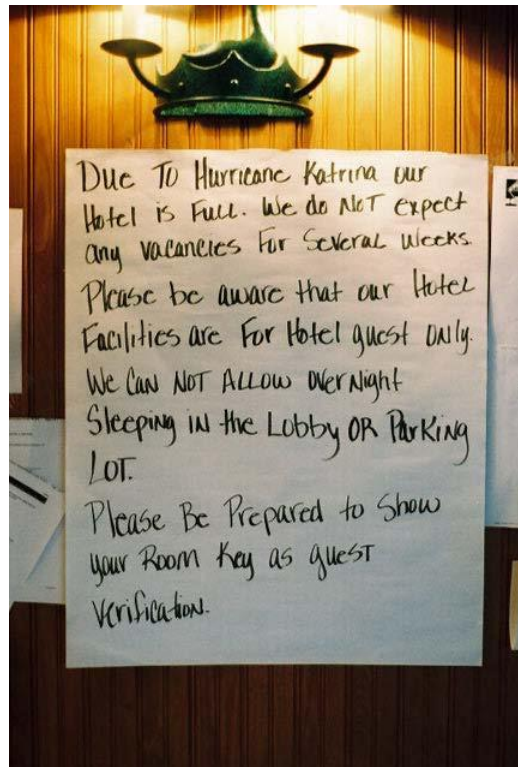 Due To Hurricane Katrina our
Hotel is Full. We do NOT expect
any vacancies For Several Weeks.
Please be aware that our Hotel
Facilities are For Hotel guest ONly.
We CaN NOT ALLOW OverNight
Sleeping iN the Lobby OR ParKing
LOT.
Please Be Prepared to Show
your Room Key as guesT
Verification.